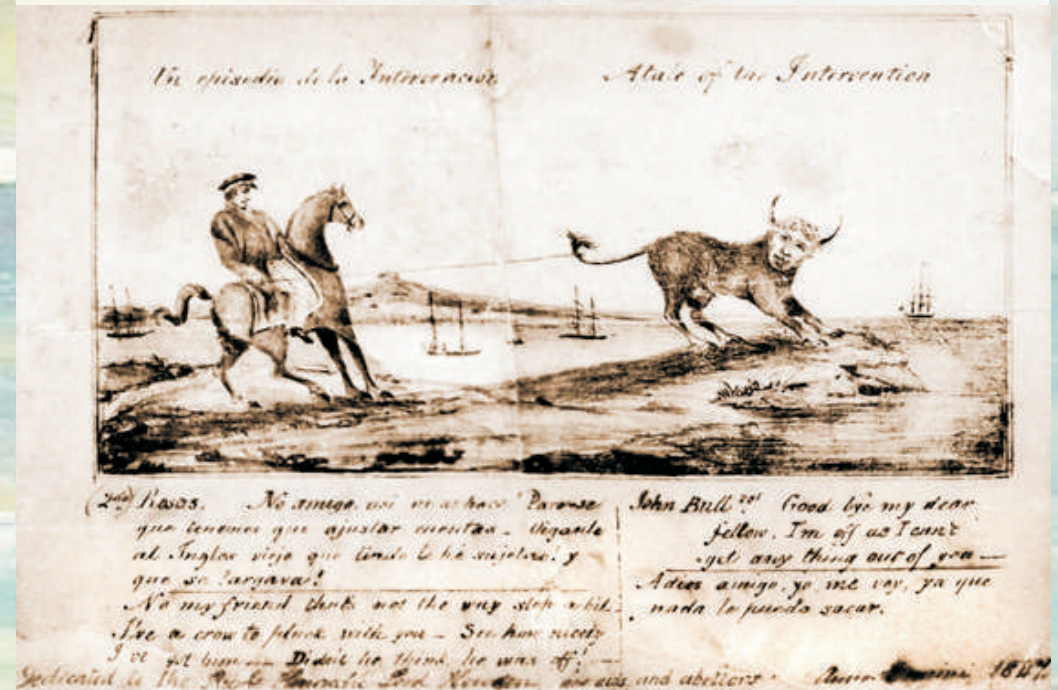 Un episodio de la Intervencion
A tale of the Intervention
(2º) Rosas. No amigo, asi no se hace! Parese
que tenemos que ajustar cuentas - 
al Ingles viejo que lindo le he sujetao! y
que se largava!
No my friend that's not the way stop a bit.
I've a crow to pluck with you - See how nicely
I've got him - Didn't he think he was off! -
John Bull Good bye my dear
fellow, I'm off as I can't
get any thing out of you -
Adios amigo, yo me voy, ya que
nada le puedo sacar.
Dedicated to the Right Honorable Lord Howden and abettors - 1847